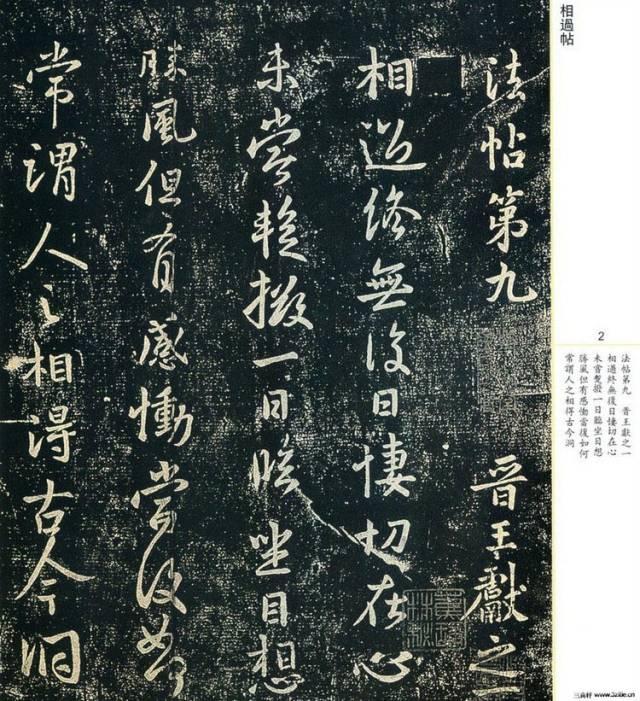 相過帖
2
法帖第九 晉王獻之一
相過終無復日悽切在心
未嘗蹔掇一日臨坐目想
勝風但有感慟當復如何
常謂人之相得古今洞
法帖第九 晉王獻之一
相過終無復日悽切在心
未嘗蹔掇一日臨坐目想
勝風但有感慟當復如何
常謂人之相得古今洞
www.3zitie.cn